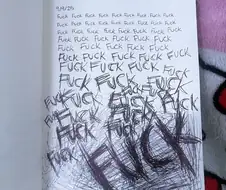 Fuck Fuck Fuck Fuck Fuck Fuck Fuck Fuck
Fuck Fuck Fuck Fuck Fuck Fuck Fuck
Fuck Fuck Fuck Fuck Fuck Fuck Fuck
Fuck Fuck Fuck Fuck Fuck Fuck
Fuck Fuck Fuck Fuck Fuck
FUCK FUCK FUCK FUCK FUCK
FUCK FUCK FUCK FUCK
FUCK FUCK FUCK
FUCK FUCK FUCK
FUCK FUCK FUCK
FUCK FUCK
FUCK
FUCK